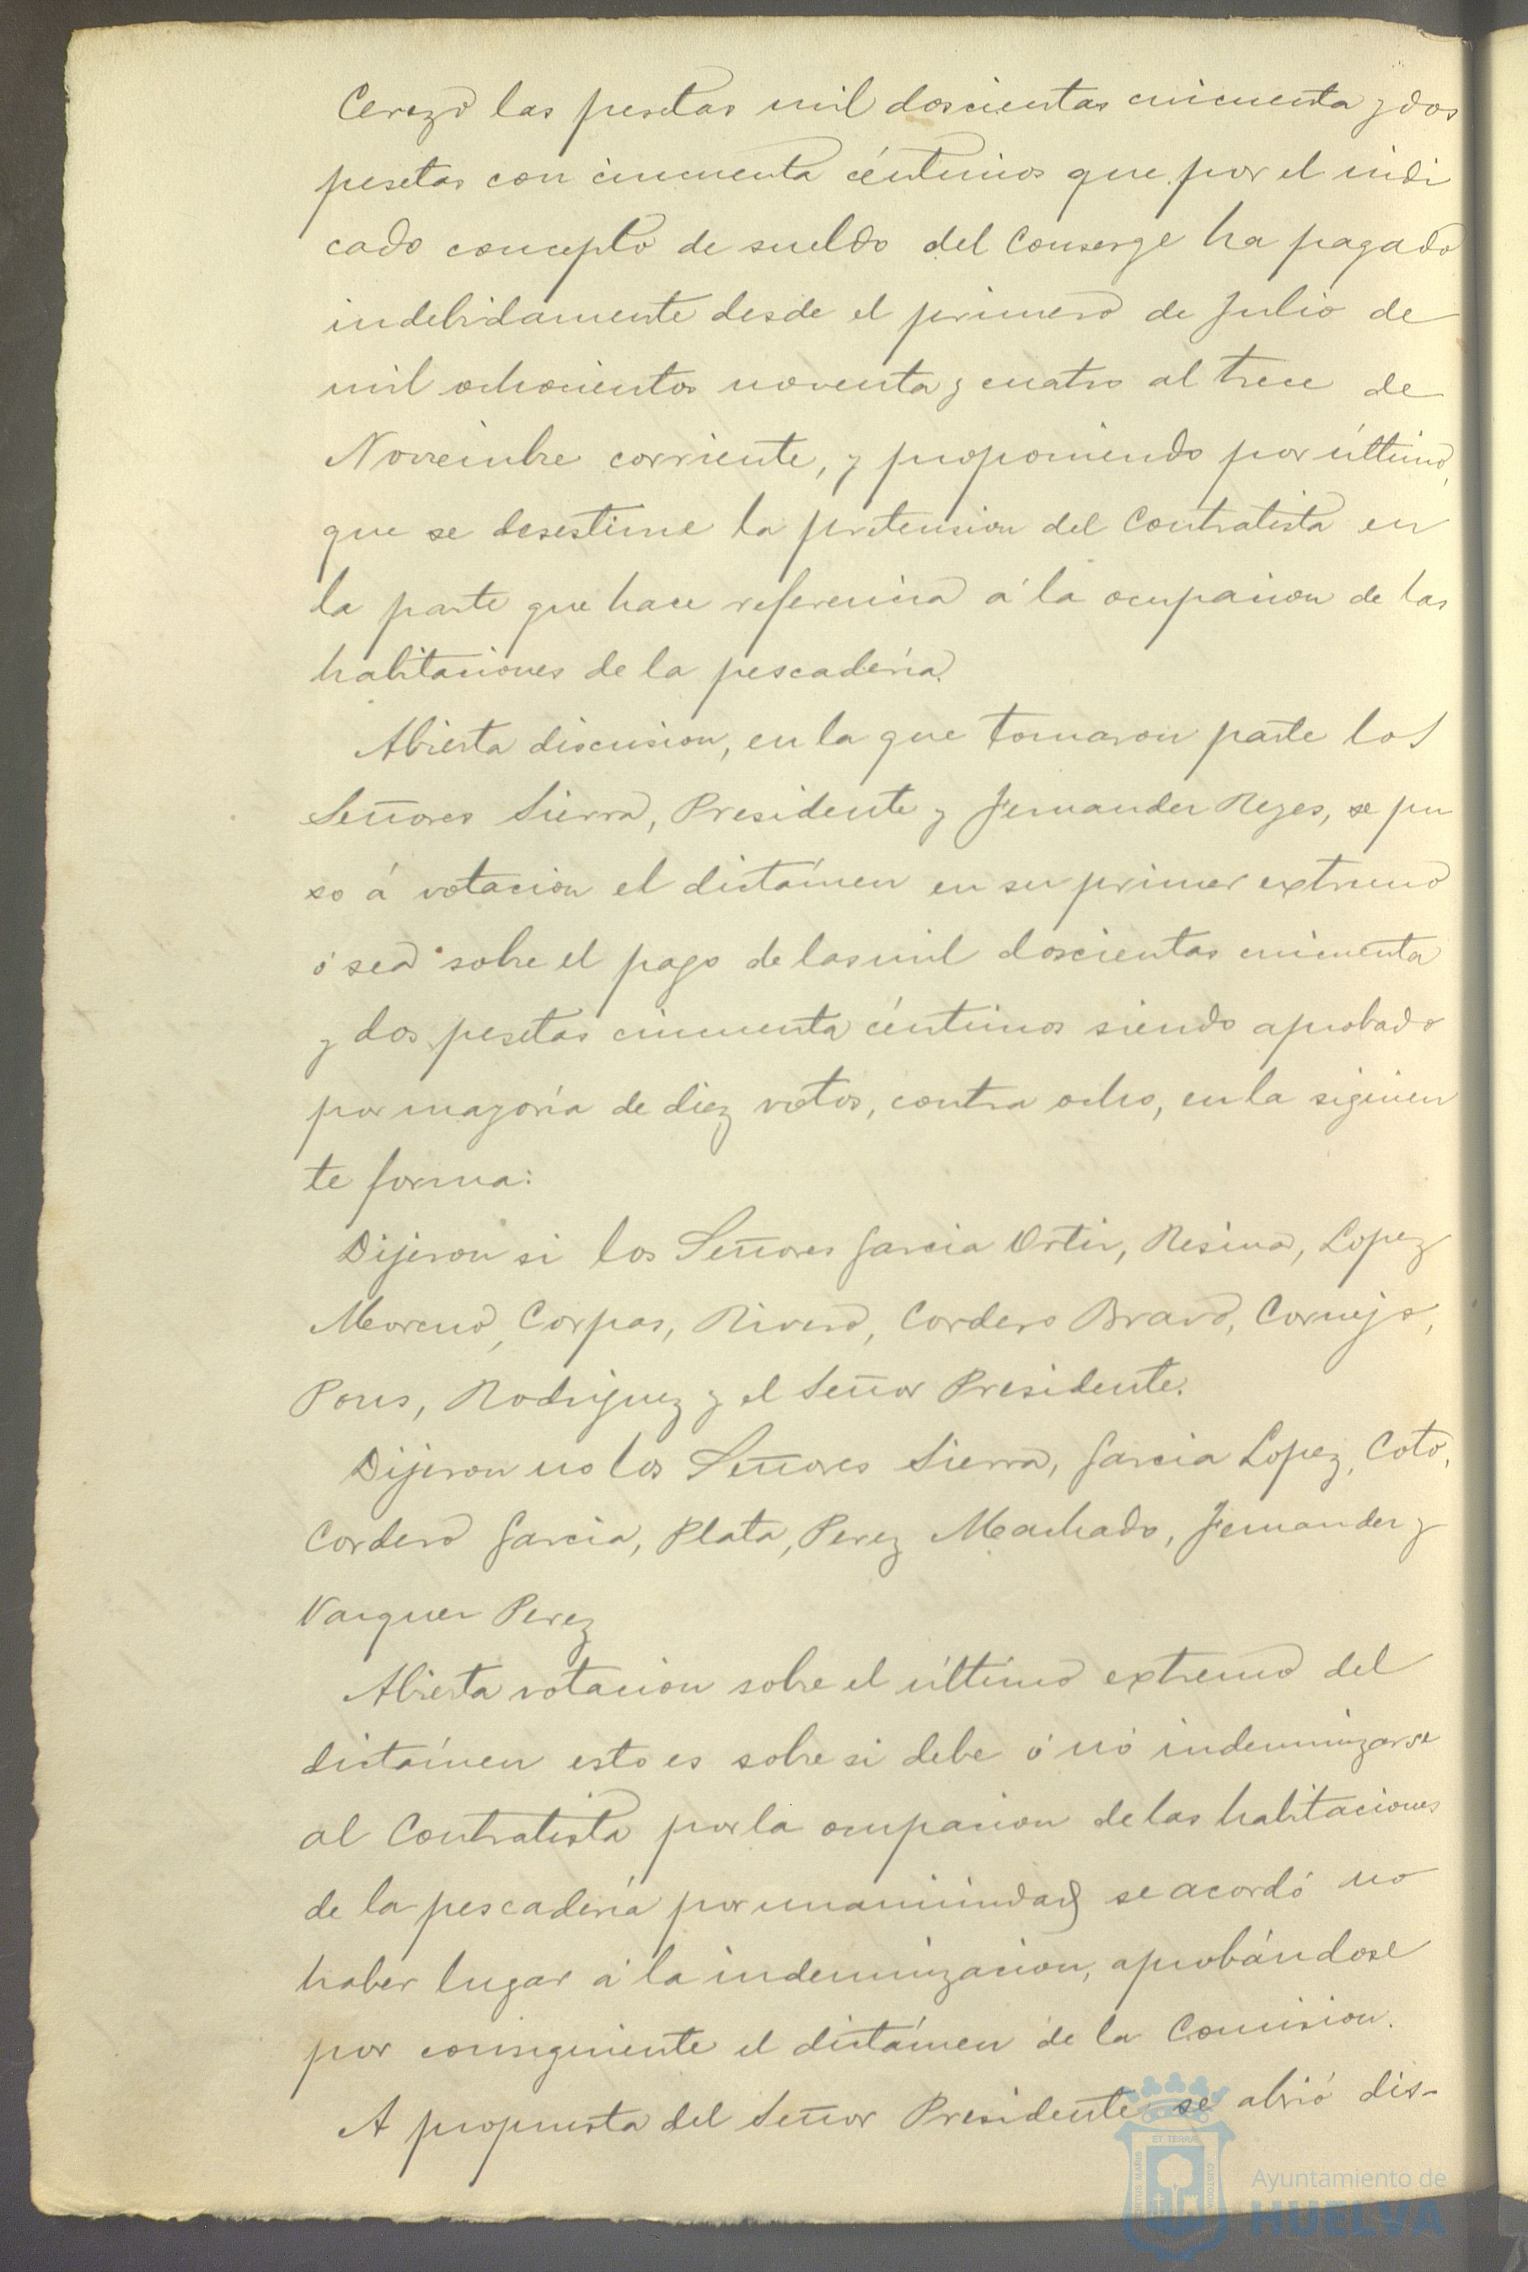 Cerezo las pesetas mil doscientas cincuenta y dos
pesetas con cincuenta céntimos que por el indi
cado concepto de sueldo del Conserge ha pagado
indebidamente desde el primero de Julio de
mil ochocientos noventa y cuatro al trece de
Noviembre corriente, y proponiendo por último,
que se desestime la pretension del Contratista en
la parte que hace referencia á la ocupacion de las
habitaciones de la pescadería.
Abierta discusion, en la que tomaron parte los
Señores Sierra, Presidente y Fernandez Reyes, se pu
so á votacion el dictámen en su primer extremo
ó sea sobre el pago de las mil doscientas cincuenta
y dos pesetas cincuenta céntimos siendo aprobado
por mayoría de diez votos, contra ocho, en la siguien
te forma:
Dijeron si los Señores Garcia Ortiz, Resina, Lopez
Moreno, Corpas, Rivero, Cordero Bravo, Cornejo,
Pons, Rodriguez y el Señor Presidente.
Dijeron no los Señores Sierra, Garcia Lopez, Coto,
Cordero Garcia, Plata, Perez Machado, Fernandez y
Vazquez Perez
Abierta votacion sobre el último extremo del
dictámen esto es sobre si debe ó nó indemnizarse
al Contratista por la ocupacion de las habitaciones
de la pescadería por unanimidad se acordó no
haber lugar á la indemnizacion, aprobándose
por consiguiente el dictámen de la Comision.
A propuesta del Señor Presidente se abrió dis-
ET TERRÆ
PORTUS MARIS
CUSTODIA
Ayuntamiento de
HUELVA